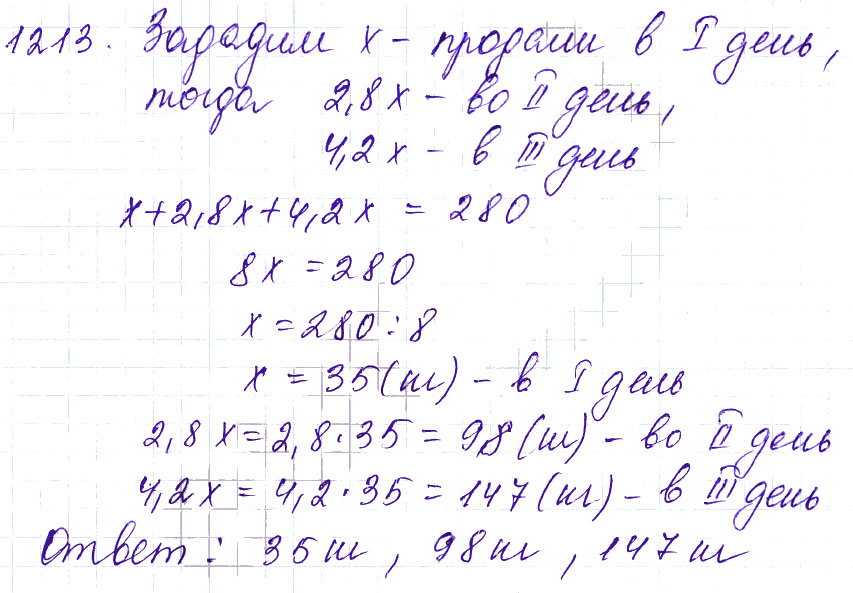 1213. Зададим x - продали в I день,
тогда 2,8x - во II день,
4,2x - в III день
x+2,8x+4,2x = 280
8x = 280
x = 280 : 8
x = 35(т) - в I день
2,8x = 2,8·35 = 98(т) - во II день
4,2x = 4,2·35 = 147(т) - в III день
Ответ: 35т, 98т, 147т